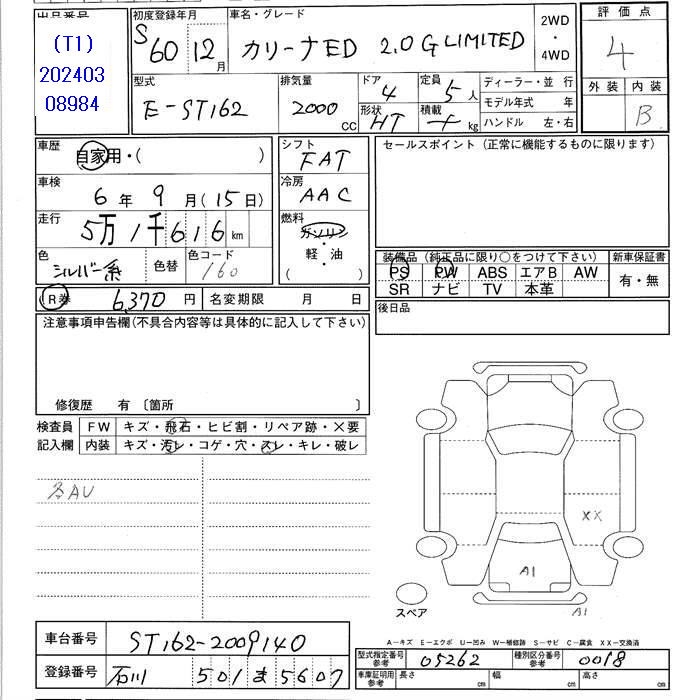 出品番号
(T1)
202403
08984
初度登録年月
S60 12月
車名・グレード
カリーナED 2.0 G LIMITED
2WD
・
4WD
評価点
4
外装 内装
B
型式
E-ST162
排気量
2000 CC
ドア
4
形状
HT
定員
5人
積載
kg
ディーラー・並 行
モデル年式 年
ハンドル 左・右
車歴
自家用・( )
車検
6年 9月(15日)
走行
5万1千616km
色
シルバー系
色替
色コード
160
R券 6,370円 名変期限 月 日
シフト
FAT
冷房
AAC
燃料
ガソリン
・
軽・油
( )
セールスポイント (正常に機能するものに限ります)
装備品 (純正品に限り○をつけて下さい)
PS PW ABS エアB AW
SR ナビ TV 本革
新車保証書
有・無
後日品
注意事項申告欄(不具合内容等は具体的に記入して下さい)
修復歴 有 〔箇所 〕
検査員
記入欄
FW キズ・飛石・ヒビ割・リペア跡・×要
内装 キズ・汚レ・コゲ・穴・スレ・キレ・破レ
XX
A1
A1
スペア
A-キズ E-エクボ U-凹み W-補修跡 S-サビ C-腐食 XX-交換済
車台番号 ST162-2009140
登録番号 石川 501 ま 5607
型式指定番号
参考
05262
種別区分番号
参考
0018
車庫証明用
参考
長さ cm 幅 cm 高さ cm